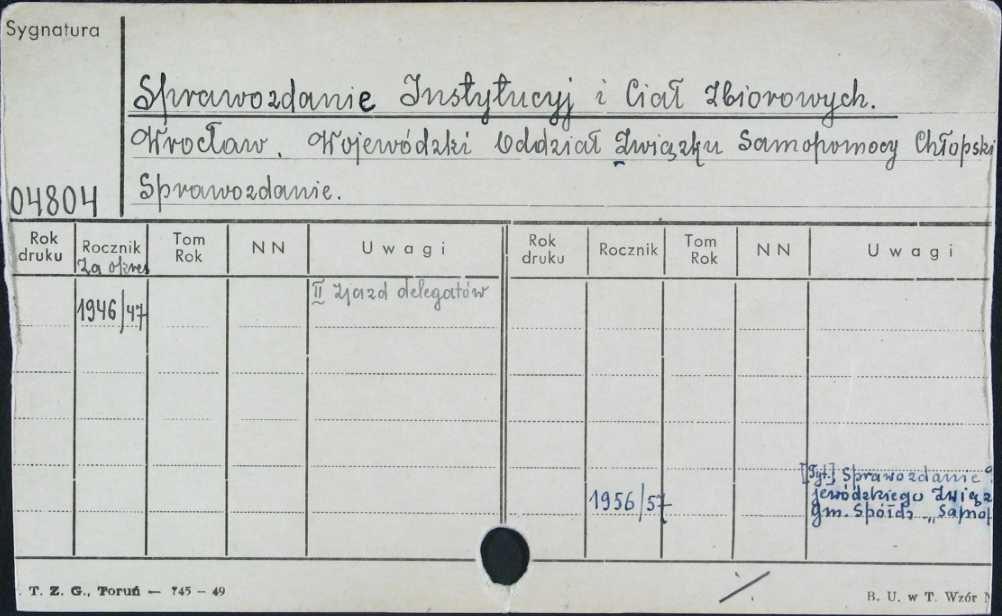 Sygnatura
Sprawozdanie Instytucyj i Ciał Zbiorowych.
Wrocław. Wojewódzki Oddział Związku Samopomocy Chłopski
Sprawozdanie.
04804
Rok druku Rocznik Tom Rok NN Uwagi Rok druku Rocznik Tom Rok NN Uwagi
Za okres
II Zjazd delegatów
1946/47
[Tyt.] Sprawozdanie
1956/57 jewódzkiego Związ
gm. Spółdz „Samop
T. Z. G., Toruń — 745 – 49
B. U. w T. Wzór